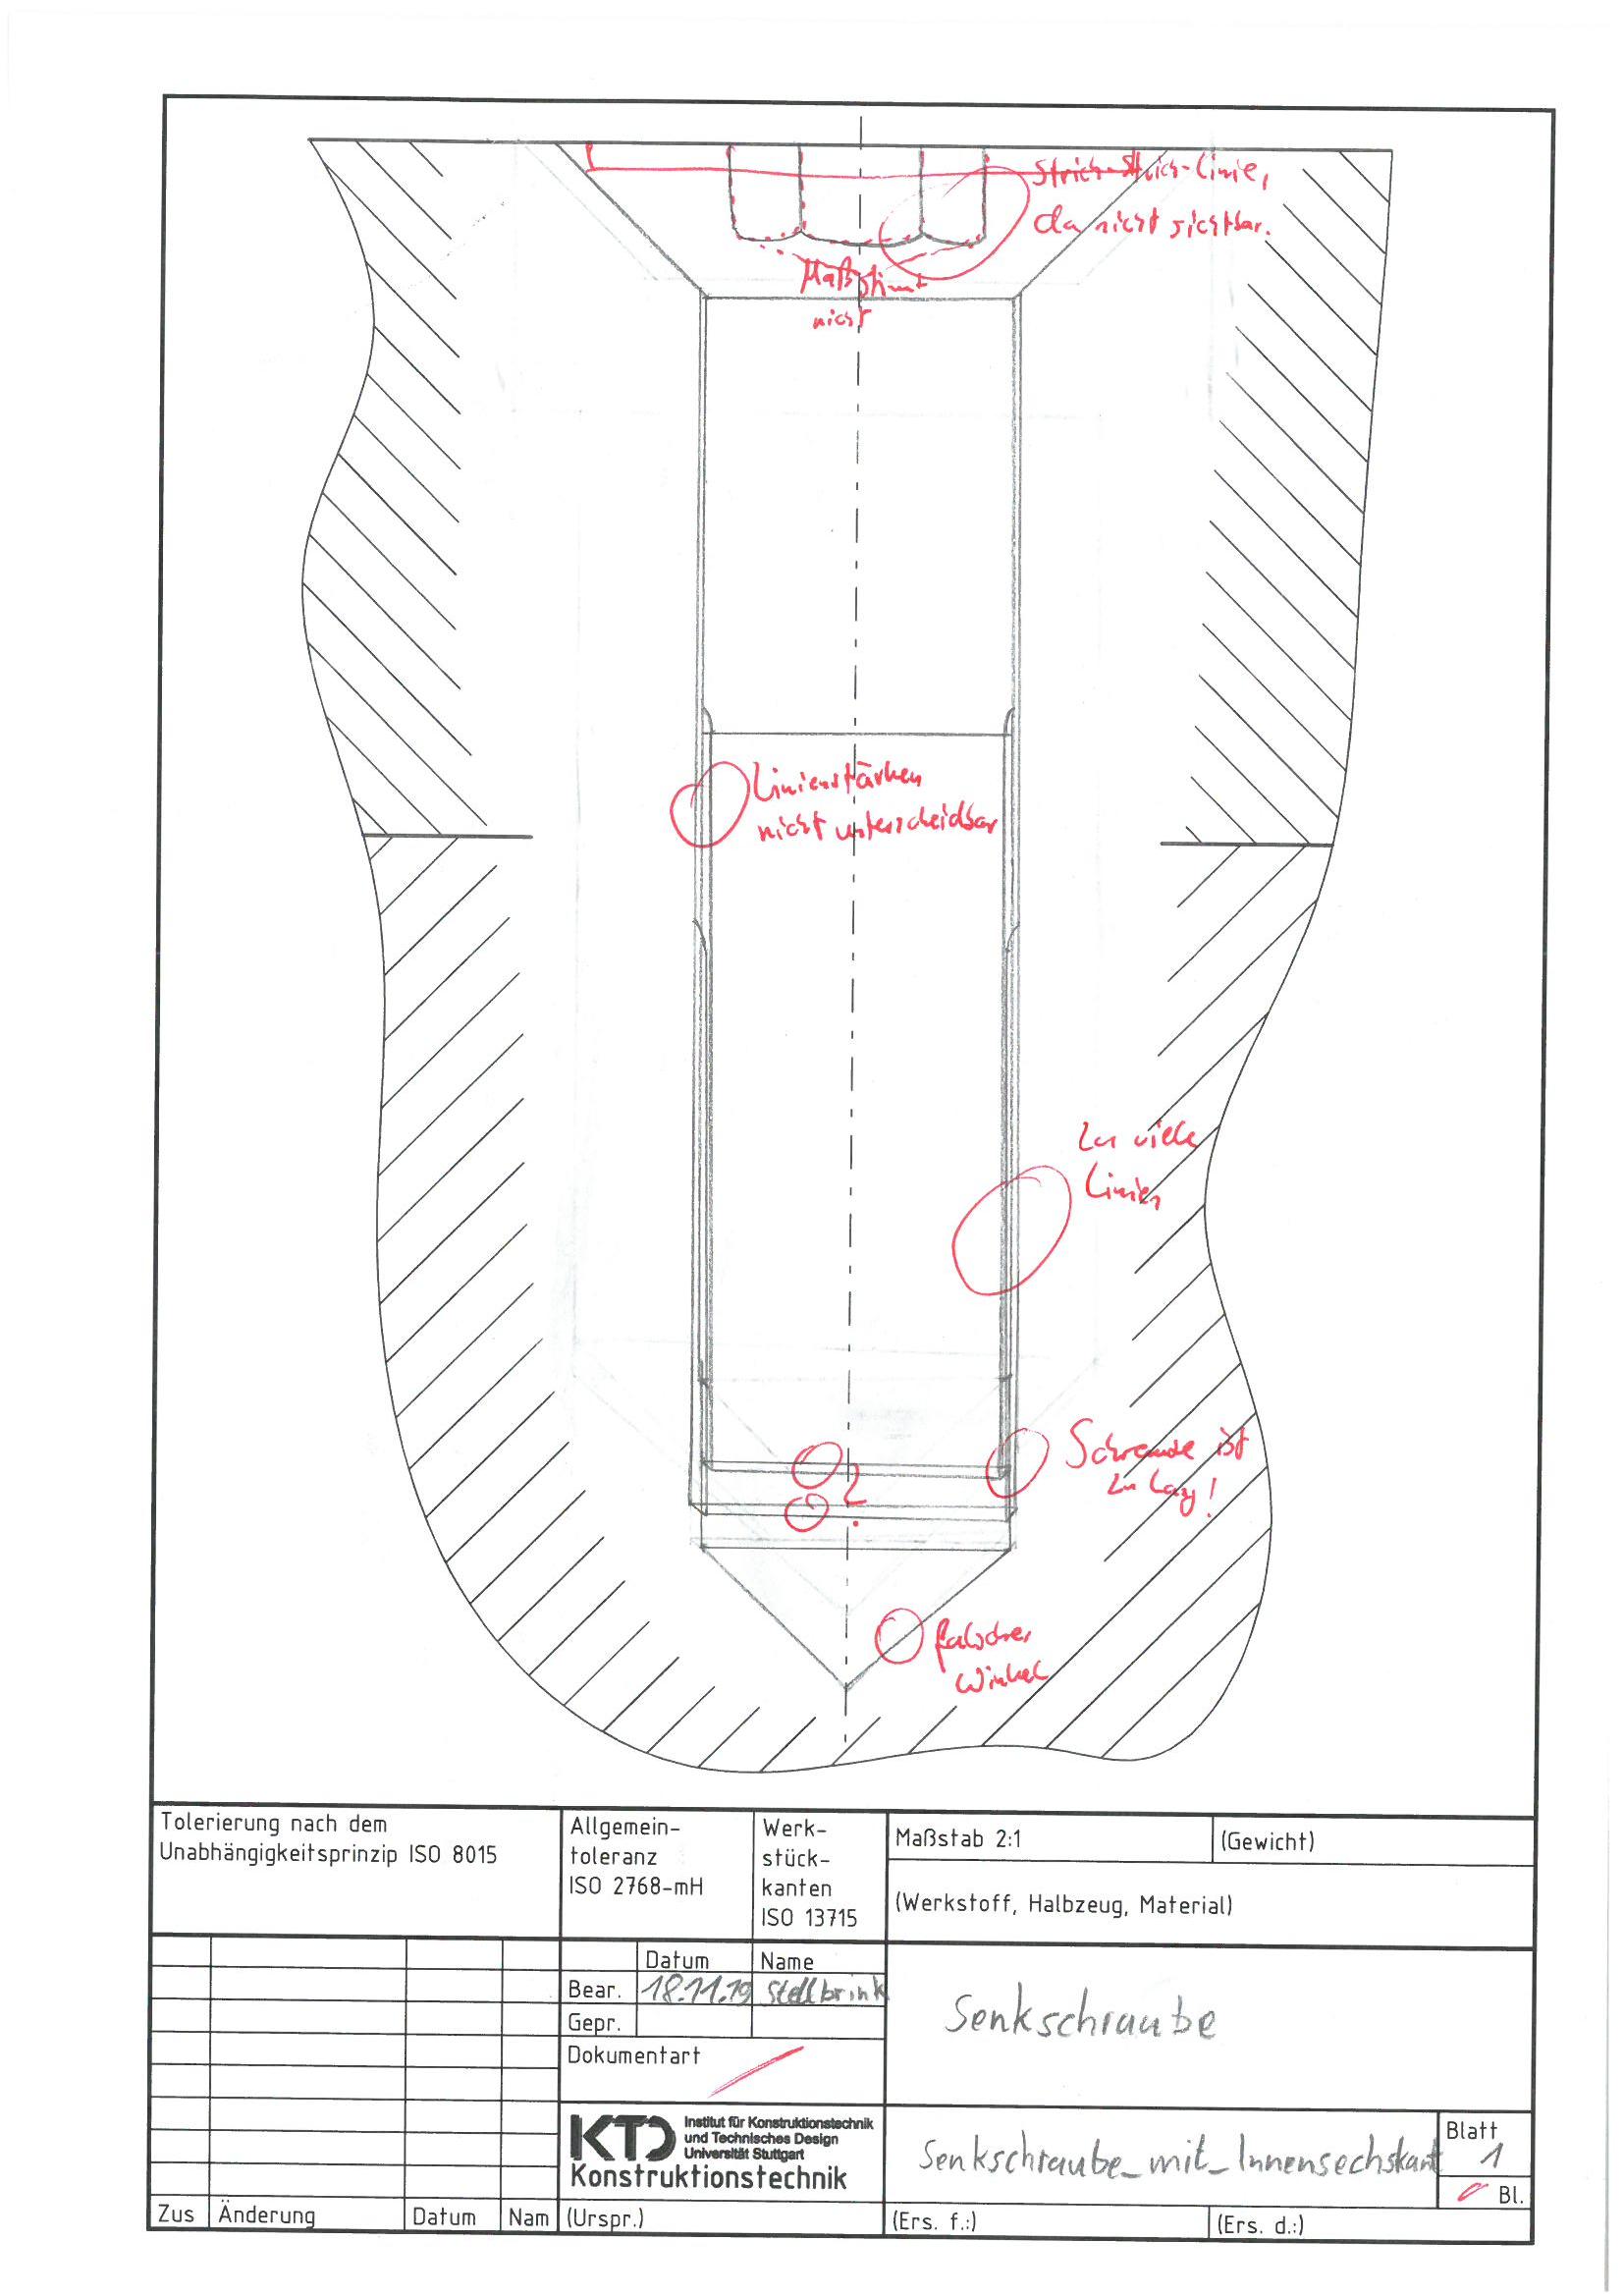 Strich-Strich-Linie,
da nicht sichtbar.
Maß stimmt
nicht
Linienstärken
nicht unterscheidbar
zu viele
Linien
Schraube ist
zu lang!
?
falscher
Winkel
Tolerierung nach dem
Unabhängigkeitsprinzip ISO 8015
Allgemein-
toleranz
ISO 2768-mH
Werk-
stück-
kanten
ISO 13715
Maßstab 2:1
(Gewicht)
(Werkstoff, Halbzeug, Material)
Datum
Name
Bear.
18.11.19
Stellbrink
Gepr.
Dokumentart
Senkschraube
KTD
Institut für Konstruktionstechnik
und Technisches Design
Universität Stuttgart
Konstruktionstechnik
Senkschraube_mit_Innensechskant
Blatt
1
Bl.
Zus
Änderung
Datum
Nam
(Urspr.)
(Ers. f.:)
(Ers. d.:)